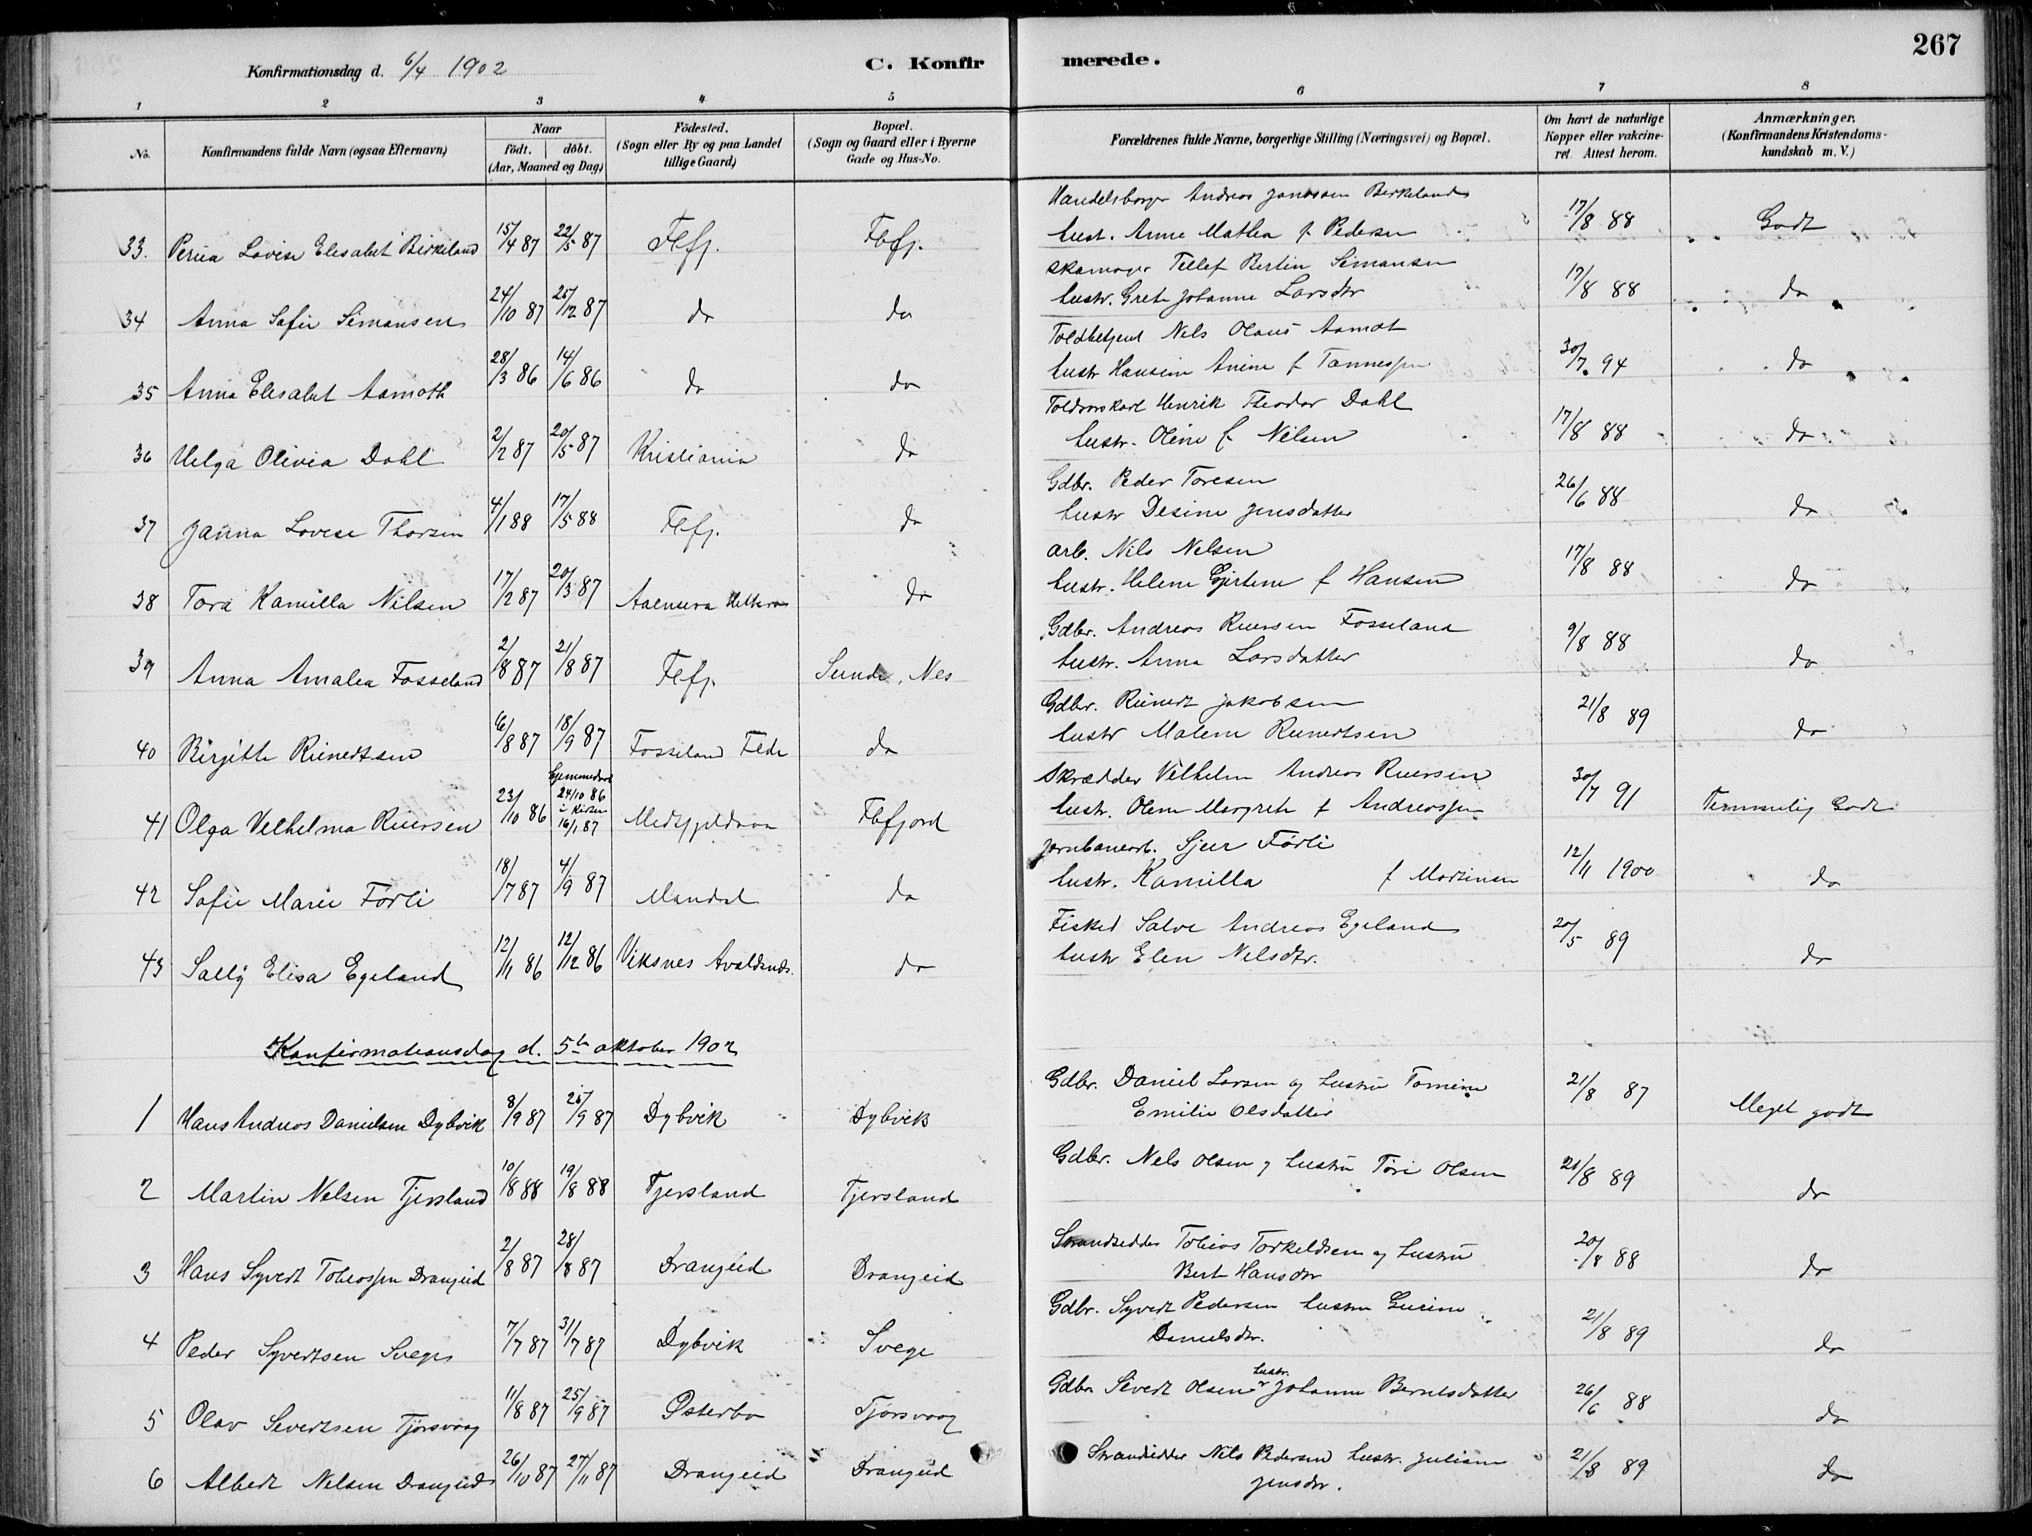 267
Konfirmationsdag d. 6/4 1902
C. Konfirmerede.
1 2 3 4 5 6 7 8
No.
Konfirmandens fulde Navn (ogsaa Efternavn)
Naar
födt. döbt.
(Aar, Maaned og Dag)
Födested.
(Sogn eller By og paa Landet
tillige Gaard)
Bopæl.
(Sogn og Gaard eller i Byerne
Gade og Hus-No.
Forældrenes fulde Navne, borgerlige Stilling (Næringsvei) og Bopæl.
Om havt de naturlige
Kopper eller vakcine-
ret. Attest herom.
Anmærkninger.
(Konfirmandens Kristendoms-
kundskab m. V.)
Handelsborger Andreas Birkeland
33. Lovise Elisabet Birkeland 15/4 87 22/5 87 Flfj. Flfj. hust. Anne Mathea f. Pedersen 17/8 88 Godt
Tellef Bertin Simonsen
34 Anna Sofie Simonsen 24/10 87 25/12 87 do do hustr. Grete Johanne Larsdtr 17/8 88 do
Toldbetjent Nils Olaus Aamot
35 Anna Elisabet Aamoth 28/3 86 14/6 86 do do hustr Hansine Anine f 30/7 94 do
Henrik Theodor Dahl
36 Helga Olivia Dahl 2/2 87 20/5 87 Kristiania do hustr. Oline f Nilsen 17/8 88 do
Gdbr. Peder Toresen
37 Janna Lovise Thorsen 4/1 88 17/5 88 Flfj. do hustr Desine Jensdatter 26/6 88 do
arb. Nils Nelsen
38 Tora Kamilla Nilsen 17/2 87 20/3 87 do hustr. Helene f Hansen 17/8 88 do
Gdbr. Andreas Fosseland
39 Anna Amalea Fosseland 2/8 87 21/8 87 Flfj. Sunde, Nes hustr. Anna Larsdatter 9/8 88 do
Gdbr. Reinert Jakobsen
40 Birgitte Reinertsen 6/8 87 18/9 87 Fosseland Fede do hustr Malene Reinertsen 21/8 89 do
Skrædder Vilhelm Andreas Reiersen
41 Olga Velhelma Reiersen 23/10 86 Hjemmedøbt 24/10 86 i Kirken 16/1 87 Flfjord hustr. Olene Margrete f Andreassen 30/7 91 Temmelig Godt
Jernbanearb. Sjur Førli
42 Sofie Marie Førli 18/7 87 4/9 87 Mandal do hustr. Kamilla f 12/11 1900 do
Salve Andreas Egeland
43 Sally Elisa Egeland 12/11 86 12/12 86 Viksnes Avaldsnes. do hustr Elen Nelsdtr. 20/5 89 do
Konfirmationsdag d. 5te oktober 1902
Gdbr. Daniel Larsen og hustru Tomine
1 Hans Andreas Danielsen Dybvik 8/9 87 25/9 87 Dybvik Dybvik Emilie Olsdatter 21/8 87 Meget godt
2 Martin Nelsen Tjersland 10/8 88 19/8 88 Tjersland Tjersland Gdbr. Nels Olsen og hustru Tori Olsen 21/8 89 do
Strandsedder Tobias Torkeldsen og hustru
3 Hans Syvert Tobiassen Drangeid 2/8 87 28/8 87 Drangeid Drangeid Hansdtr 20/8 88 do
Gdbr. Syvert Pedersen hustru Gurine
4 Peder Syvertsen Svege 7/7 87 31/7 87 Dybvik Svege Danielsdtr. 21/8 89 do
5 Olav Severtsen Tjørsvaag 11/8 87 25/9 87 Østerbo Tjørsvaag Gdbr Severt Olsen hustr. Johanne Berntsdatter 26/6 88 do
6 Albert Nelsen Drangeid 26/10 87 27/11 87 Drangeid Drangeid Strandsidder Nils Pedersen hustr. Juliane 21/8 89 do
Jensdtr.